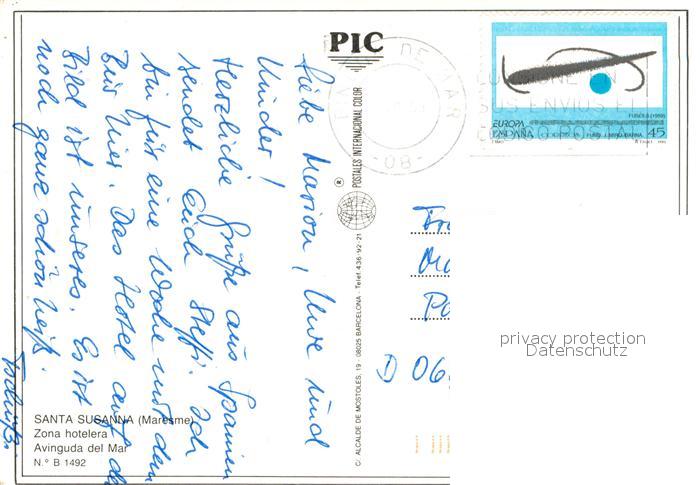 PIC
Liebe Marion, Uwe und
Kinder!
Herzliche Grüße aus Spanien
sendet Euch Steffi. Ich
bin für eine Woche mit dem
Bus hier. Das Hotel auf de
Bild ist unseres. Es ist
noch ganz schön heiß.
Tschüß.
SANTA SUSANNA (Maresme)
Zona hotelera
Avinguda del Mar
N.º B 1492
POSTALES INTERNACIONAL COLOR
®
C/. ALCALDE DE MOSTOLES, 19 - 08025 BARCELONA - Telef. 436-92-21
DE MAR
-08-
EN
SUS ENVIOS EL
CODIGO POSTAL
FUSEES (1959)
EUROPA
ESPAÑA
45
Fr
D 06
privacy protection
Datenschutz